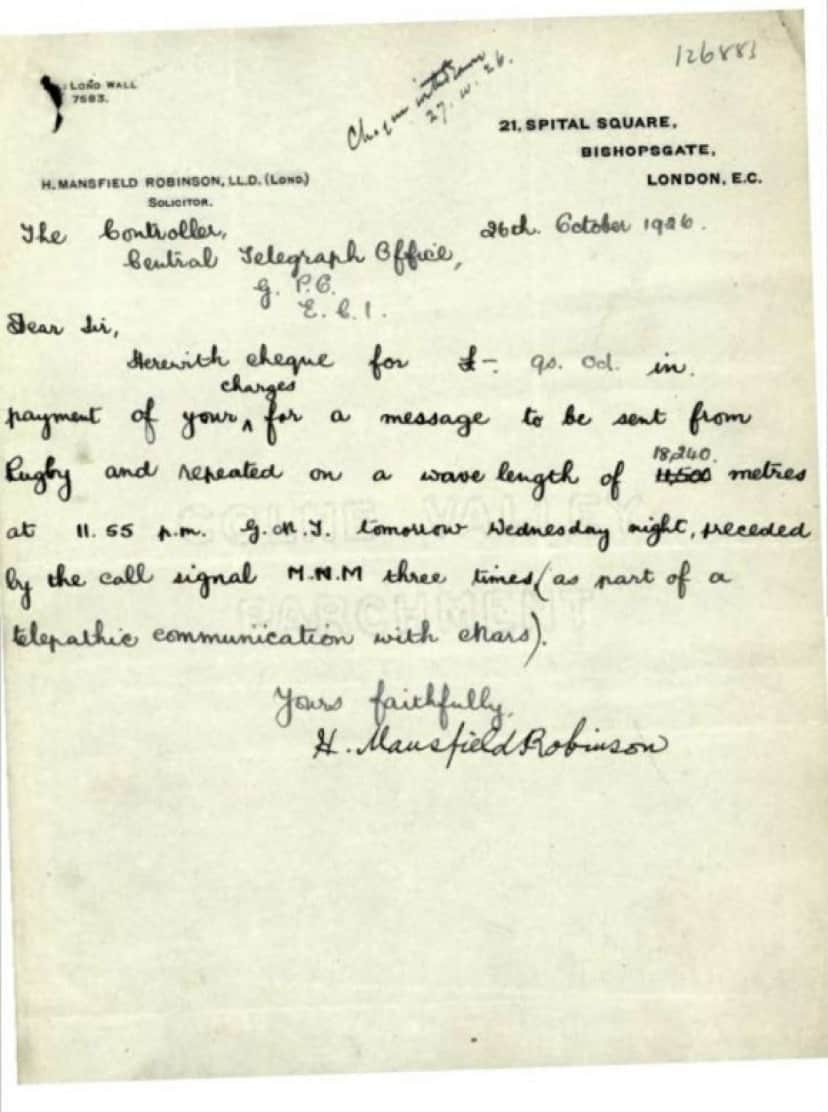 126881
Cheque withdrawn
27.10.26.
LOND WALL
7683.
21, SPITAL SQUARE,
BISHOPSGATE,
LONDON, E.C.
H. MANSFIELD ROBINSON, LL.D. (LOND.)
SOLICITOR.
26th. October 1926.
The Controller,
Central Telegraph Office,
G. P.O.
E. C. 1.
Dear Sir,
Herewith cheque for £-. 9s. 0d. in
charges
payment of your ^ for a message to be sent from
18,240.
Rugby and repeated on a wave length of 11,500 metres
at 11. 55 p.m. G.M.T. tomorrow Wednesday night, preceded
by the call signal M.N.M three times, (as part of a
telepathic communication with Mars).
Yours faithfully,
H. Mansfield Robinson
COLNE VALLEY
PARCHMENT